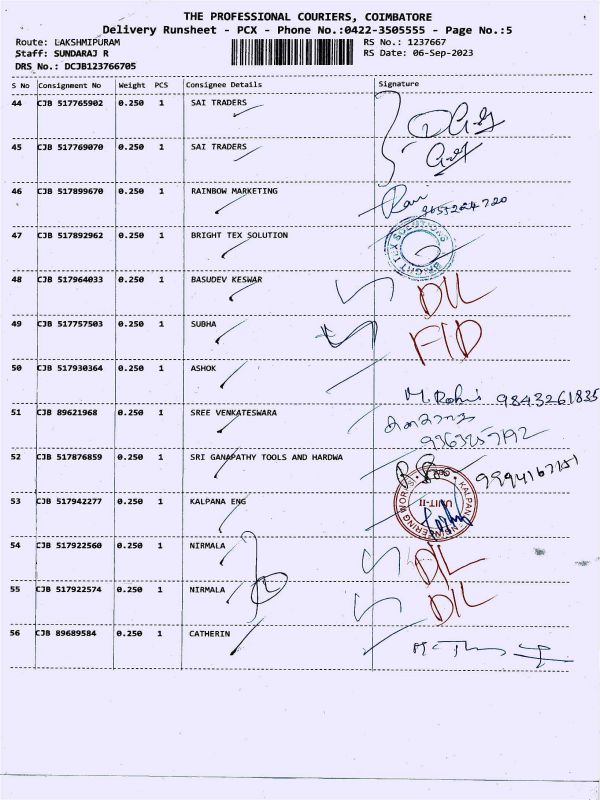 THE PROFESSIONAL COURIERS, COIMBATORE
Delivery Runsheet - PCX - Phone No.:0422-3505555 - Page No.:5
Route: LAKSHMIPURAM RS No.: 1237667
Staff: SUNDARAJ R RS Date: 06-Sep-2023
DRS No.: DCJB123766705
S No Consignment No Weight PCS Consignee Details Signature
44 CJB 517765902 0.250 1 SAI TRADERS
45 CJB 517769070 0.250 1 SAI TRADERS
46 CJB 517899670 0.250 1 RAINBOW MARKETING
47 CJB 517892962 0.250 1 BRIGHT TEX SOLUTION
BRIGHT TEX SOLUTIONS
48 CJB 517964033 0.250 1 BASUDEV KESWAR D/L
49 CJB 517757503 0.250 1 SUBHA
50 CJB 517930364 0.250 1 ASHOK
9843261835
51 CJB 89621968 0.250 1 SREE VENKATESWARA
52 CJB 517876859 0.250 1 SRI GANAPATHY TOOLS AND HARDWA
53 CJB 517942277 0.250 1 KALPANA ENG
UNIT-II
54 CJB 517922560 0.250 1 NIRMALA D/L
55 CJB 517922574 0.250 1 NIRMALA D/L
56 CJB 89689584 0.250 1 CATHERIN